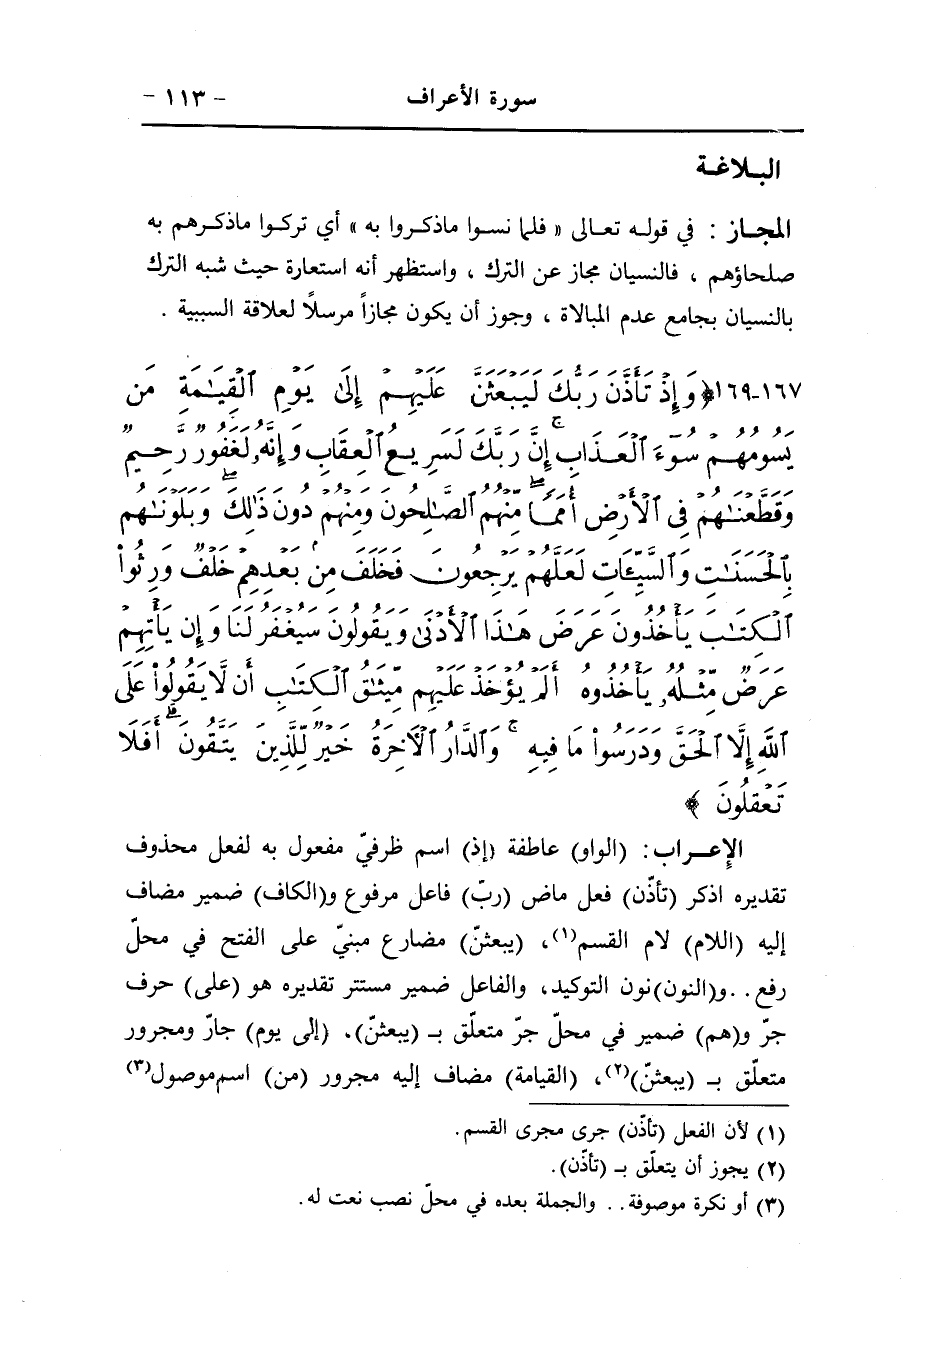 سورة الأعراف - ١١٣ -
البـلاغـة
المجـاز : في قولـه تعـالى « فلما نسـوا ماذكـروا به » أي تركـوا ماذكـرهم به
صلحاؤهم ، فالنسيان مجاز عن الترك ، واستظهر أنه استعارة حيث شبه الترك
بالنسيان بجامع عدم المبالاة ، وجوز أن يكون مجازاً مرسلًا لعلاقة السببية .
١٦٧-١٦٩﴿ وَإِذْ تَأَذَّنَ رَبُّكَ لَيَبْعَثَنَّ عَلَيْهِمْ إِلَىٰ يَوْمِ ٱلْقِيَـٰمَةِ مَن
يَسُومُهُمْ سُوٓءَ ٱلْعَذَابِ ۗ إِنَّ رَبَّكَ لَسَرِيعُ ٱلْعِقَابِ وَإِنَّهُۥ لَغَفُورٌ رَّحِيمٌ
وَقَطَّعْنَـٰهُمْ فِى ٱلْأَرْضِ أُمَمًا ۖ مِّنْهُمُ ٱلصَّـٰلِحُونَ وَمِنْهُمْ دُونَ ذَٰلِكَ ۖ وَبَلَوْنَـٰهُم
بِٱلْحَسَنَـٰتِ وَٱلسَّيِّـَٔاتِ لَعَلَّهُمْ يَرْجِعُونَ فَخَلَفَ مِنۢ بَعْدِهِمْ خَلْفٌ وَرِثُوا۟
ٱلْكِتَـٰبَ يَأْخُذُونَ عَرَضَ هَـٰذَا ٱلْأَدْنَىٰ وَيَقُولُونَ سَيُغْفَرُ لَنَا وَإِن يَأْتِهِمْ
عَرَضٌ مِّثْلُهُۥ يَأْخُذُوهُ ۚ أَلَمْ يُؤْخَذْ عَلَيْهِم مِّيثَـٰقُ ٱلْكِتَـٰبِ أَن لَّا يَقُولُوا۟ عَلَى
ٱللَّهِ إِلَّا ٱلْحَقَّ وَدَرَسُوا۟ مَا فِيهِ ۗ وَٱلدَّارُ ٱلْـَٔاخِرَةُ خَيْرٌ لِّلَّذِينَ يَتَّقُونَ ۗ أَفَلَا
تَعْقِلُونَ ﴾
الإعـراب: (الواو) عاطفة (إذ) اسم ظرفيّ مفعول به لفعل محذوف
تقديره اذكر (تأذّن) فعل ماض (ربّ) فاعل مرفوع و(الكاف) ضمير مضاف
إليه (اللام) لام القسم(١)، (يبعثنّ) مضارع مبنيّ على الفتح في محلّ
رفع. .و(النون)نون التوكيد، والفاعل ضمير مستتر تقديره هو (على) حرف
جرّ و(هم) ضمير في محلّ جرّ متعلّق بـ (يبعثنّ)، (إلى يوم) جارّ ومجرور
متعلّق بـ (يبعثنّ)(٢)، (القيامة) مضاف إليه مجرور (من) اسم موصول(٣)
(١) لأن الفعل (تأذّن) جرى مجرى القسم.
(٢) يجوز أن يتعلّق بـ (تأذّن).
(٣) أو نكرة موصوفة. . والجملة بعده في محلّ نصب نعت له.